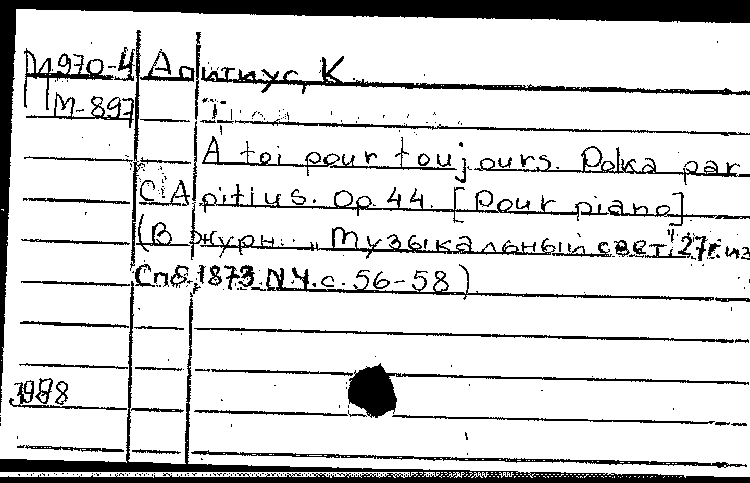 М970-4 Апитиус, К
М-897
A toi pour toujours. Polka par
C. Apitius. Op 44. [Pour piano]
(В журн. „Музыкальный свет" 27г. из
Спб, 1873. N 4. с. 56-58)
3988